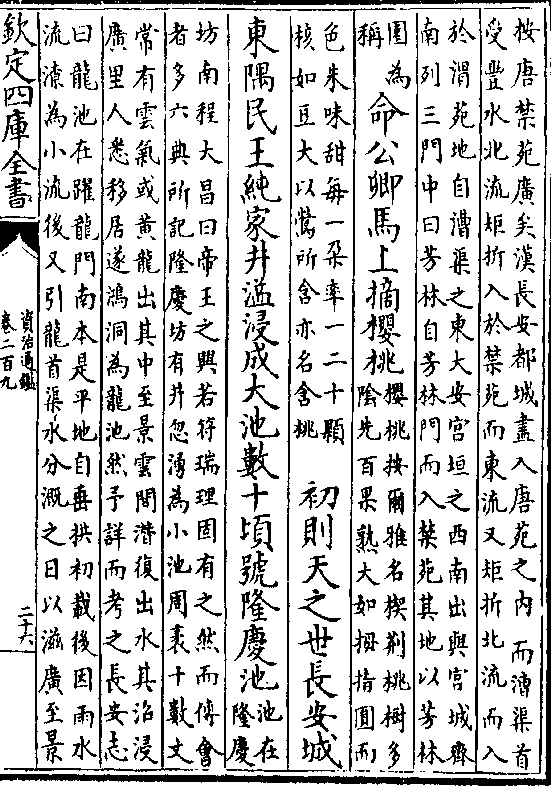 按唐禁苑廣矣漢長安都城盡入唐苑之内而漕渠首
受豐水北流矩折入於禁苑而東流又矩折北流而入
於渭苑地自漕渠之東大安宮垣之西南出與宮城齊
南列三門中曰芳林自芳林門而入禁苑其地以芳林
園為
稱
命公卿馬上摘櫻桃
櫻桃按爾雅名楔荆桃樹多
陰先百果熟大如拇指圓而
色朱味甜每一朶率一二十顆
核如豆大以鶯所含亦名含桃
初則天之世長安城
東隅民王純家井溢浸成大池數十頃號隆慶池
池在
隆慶
坊南程大昌曰帝王之興若符瑞理固有之然而傅會
者多六典所記隆慶坊有井忽湧為小池周袤十數丈
常有雲氣或黄龍出其中至景雲間潛復出水其沼浸
廣里人悉移居遂鴻洞為龍池然予詳而考之長安志
曰龍池在躍龍門南本是平地自垂拱初載後因雨水
流潦為小流後又引龍首渠水分溉之日以滋廣至景
欽定四庫全書
資治通鑑
卷二百九
二十六